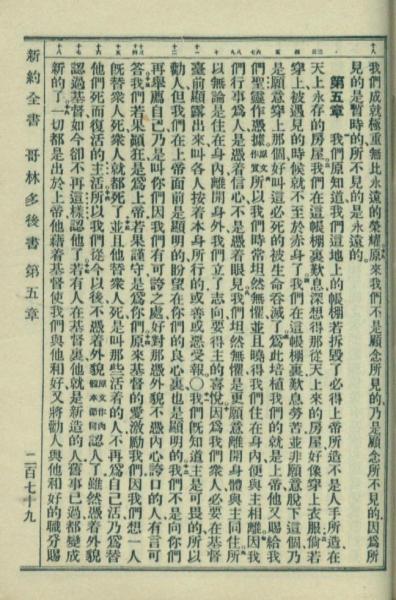 我們成就極重無比永遠的榮耀原來我們不是顧念所見的乃是顧念所不見的因爲所
見的是暫時的所不見的是永遠的
第五章 我們原知道我們這地上的帳棚若拆毀了必得上帝所造不是人手所造在
天上永存的房屋我們在這帳棚裏歎息深想得那從天上來的房屋好像穿上衣服倘若
穿上被遇見的時候就不至於赤身了我們在這帳棚裏歎息勞苦並非願意脫下這個乃
是願意穿上那個好叫這必死的被生命吞滅了爲此培植我們的就是上帝他又賜給我
們聖靈作憑據原文作質所以我們時常坦然無懼並且曉得我們住在身內便與主相離因我
們行事爲人是憑着信心不是憑着眼見我們坦然無懼是更願意離開身體與主同住所
以無論是住在身內離開身外我們立了志向要得主的喜悅因爲我們衆人必要在基督
臺前顯露出來叫各人按着本身所行的或善或惡受報○我們旣知道主是可畏的所以
勸人但我們在上帝面前是顯明的盼望在你們的良心裏也是顯明的我們不是向你們
再舉薦自己乃是叫你們因我們有可誇之處好對那憑外貌不憑內心誇口的人有言可
答我們若果顛狂是爲上帝若果謹守是爲你們原來基督的愛激勵我們因我們想一人
旣替衆人死衆人就都死了並且他替衆人死是叫那些活着的人不再爲自己活乃爲替
他們死而復活的主活所以我們從今以後不憑着外貌原文作肉體本節同認人了雖然憑着外貌
認過基督如今卻不再這樣認他了若有人在基督裏他就是新造的人舊事已過都變成
新的了一切都是出於上帝他藉着基督使我們與他和好又將勸人與他和好的職分賜
新約全書 哥林多後書 第五章 二百七十九